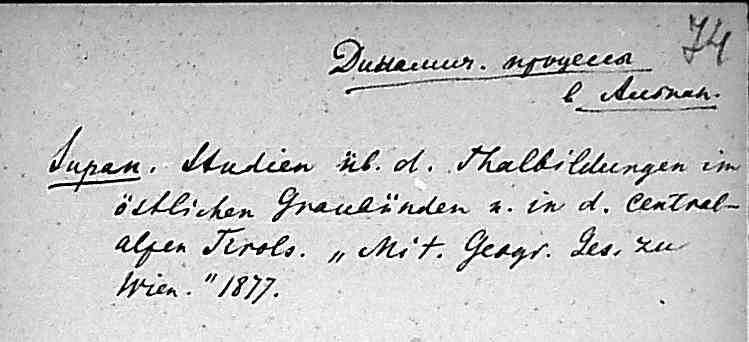 74
Динамич. процессы
в Альпах.
Supan. Studien üb. d. Thalbildungen im
östlichen Graubünden u. in d. Central-
alpen Tirols. „Mit. Geogr. Ges. zu
Wien." 1877.